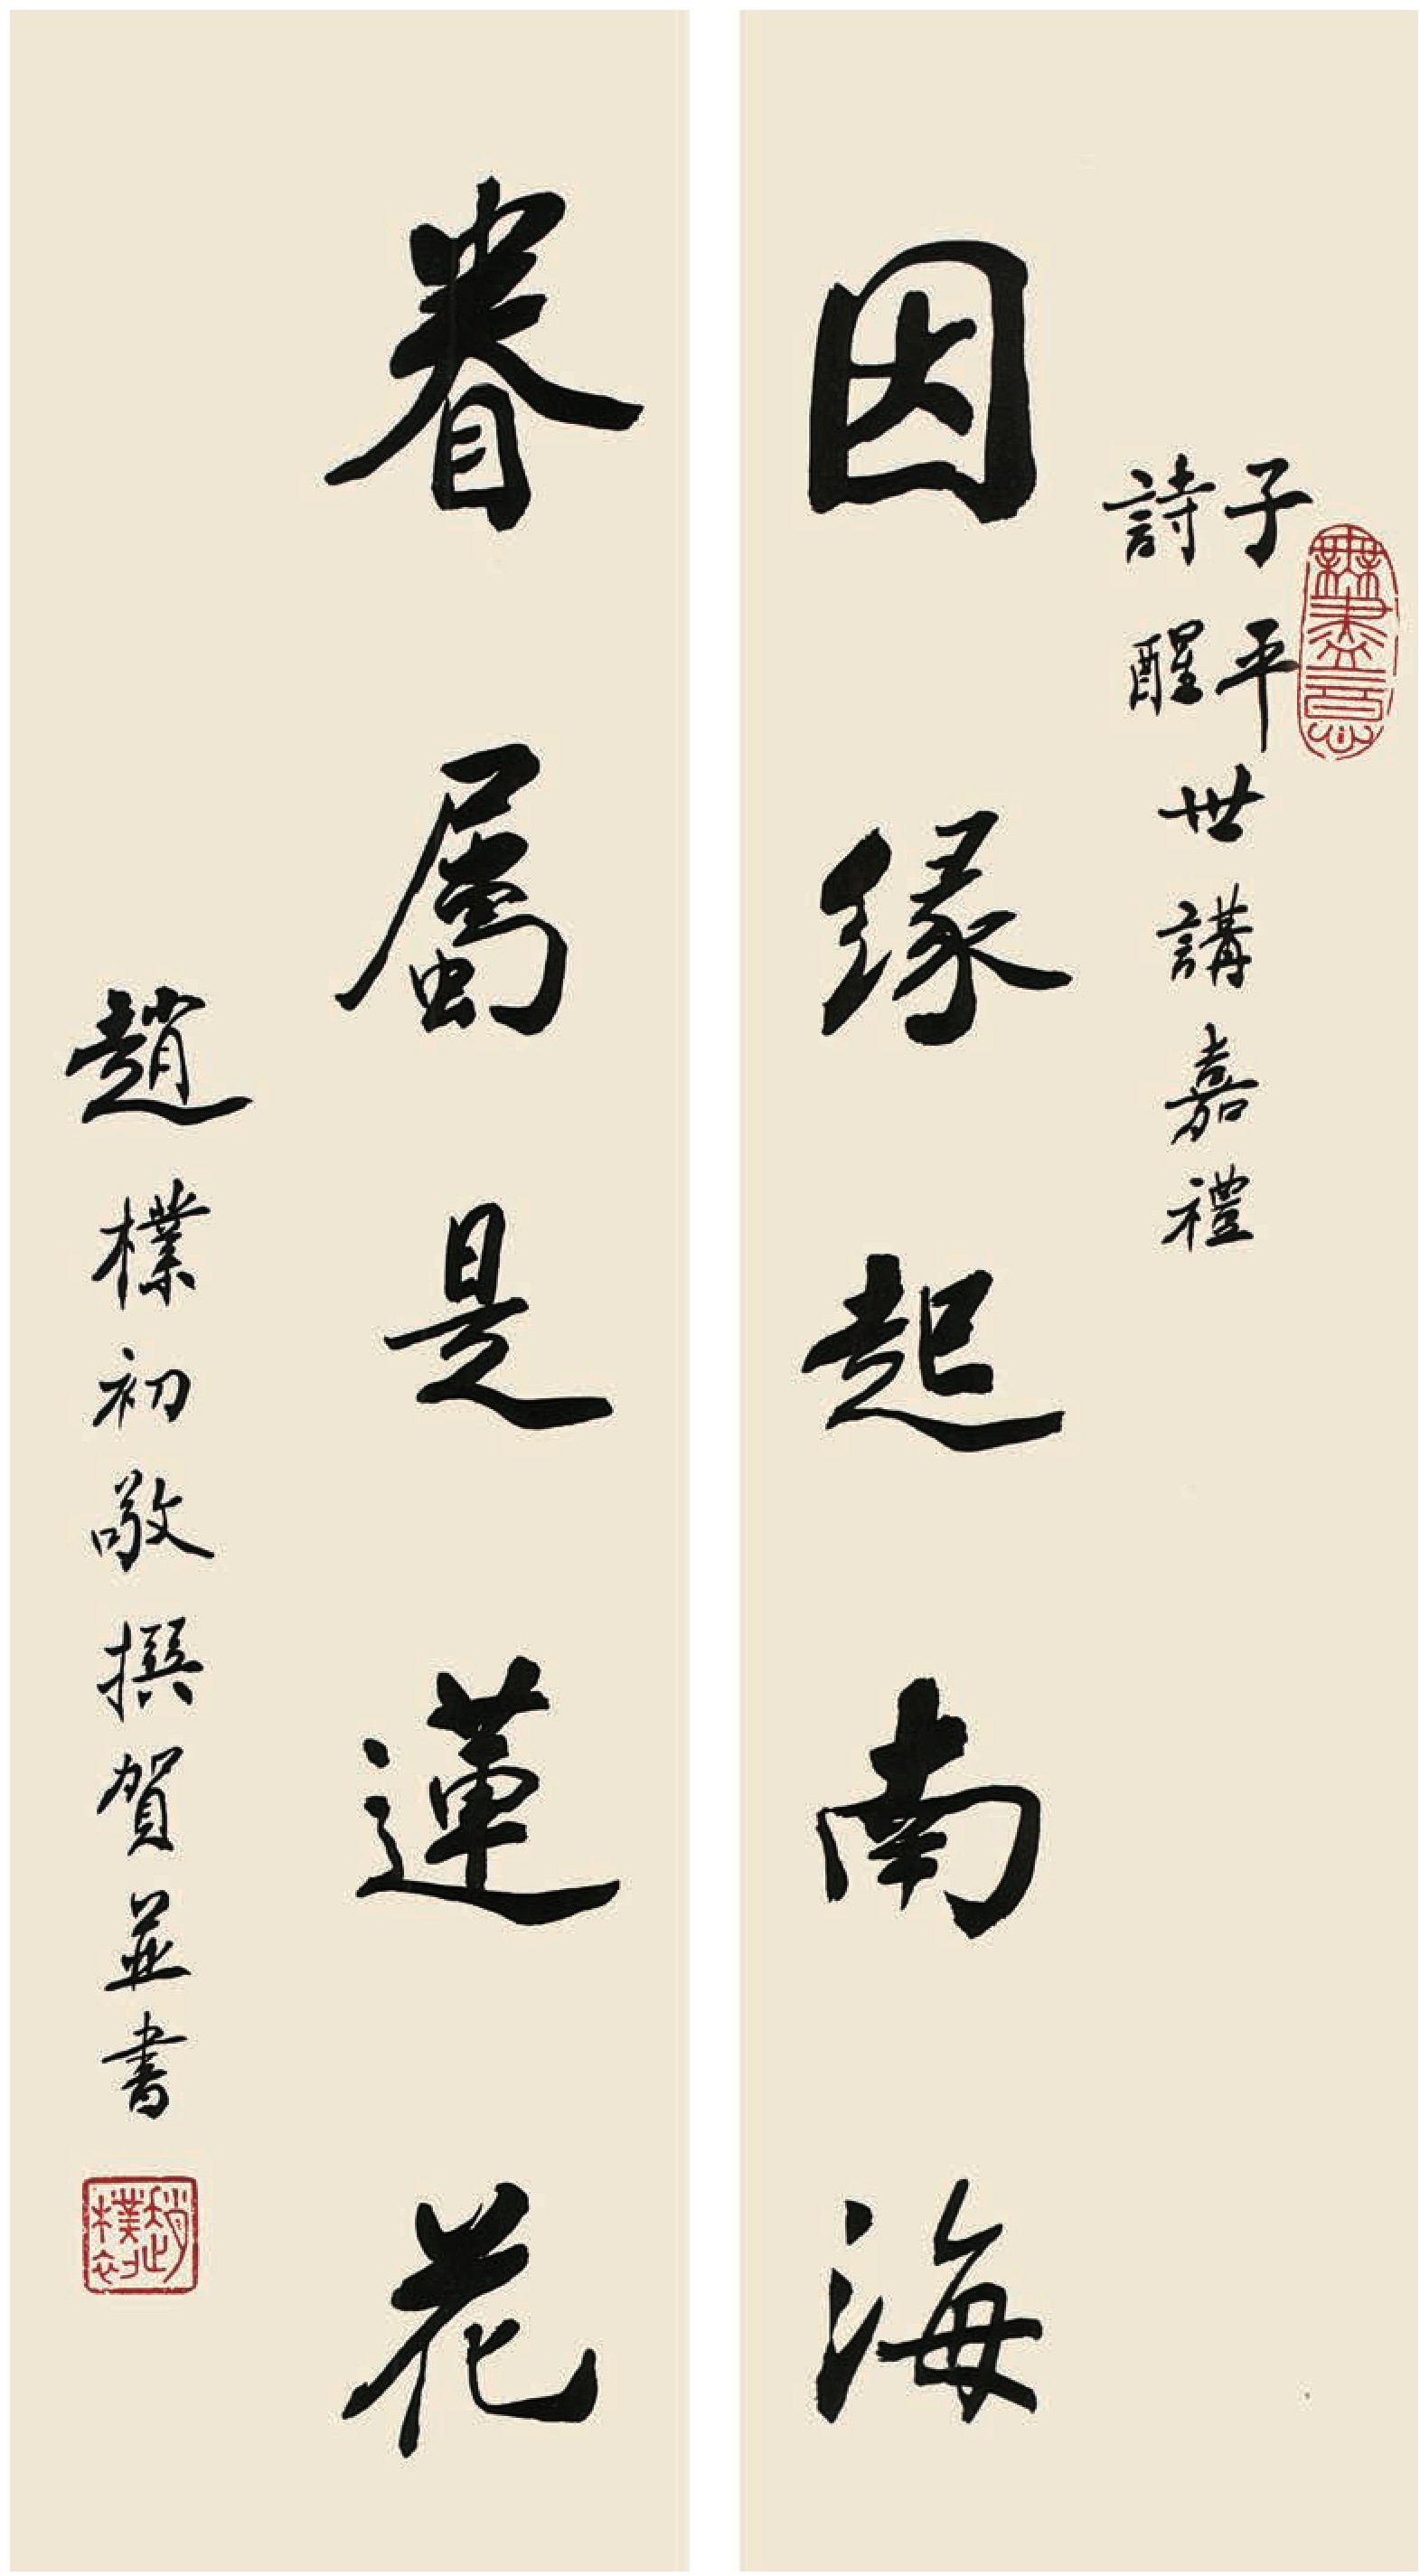 子平
詩醒
世講嘉禮
因緣起南海
眷屬是蓮花
趙樸初敬撰賀並書
無盡意
趙樸初